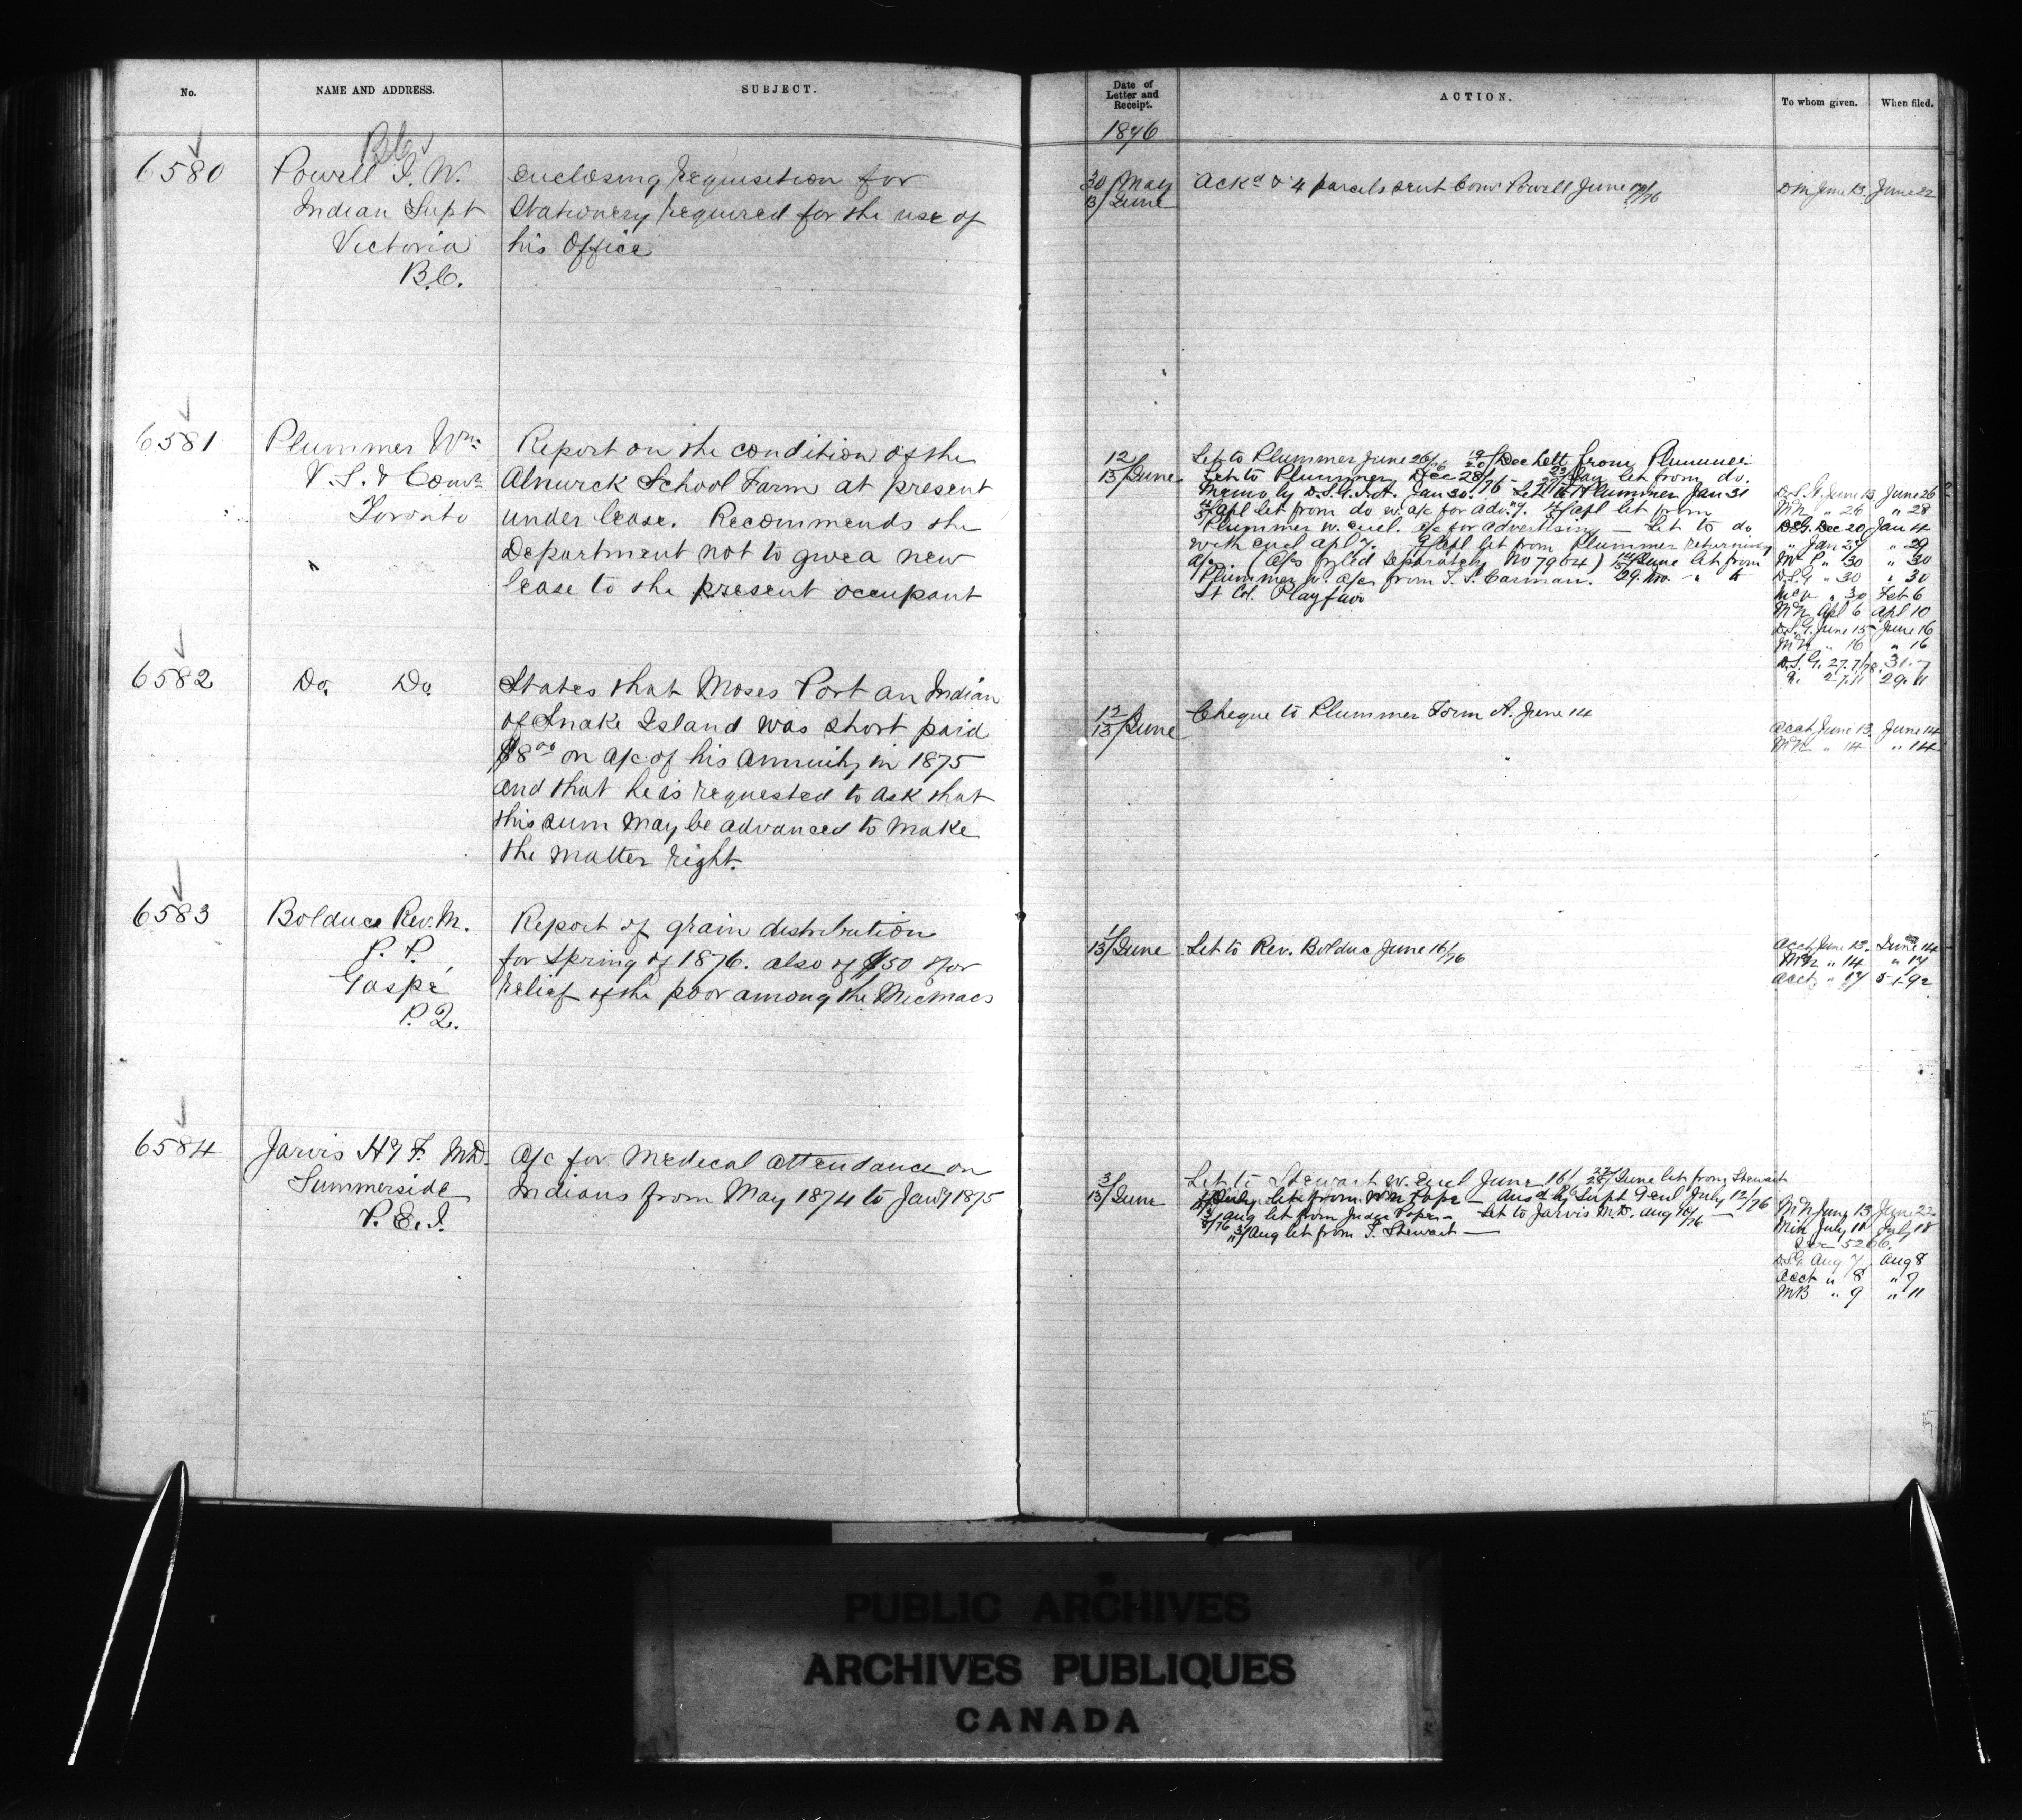 No. NAME AND ADDRESS. SUBJECT.
B.C.
6580 Powell I. W. enclosing requisition for
Indian Supt Stationery required for the use of
Victoria his Office
B.C.
6581 Plummer Wm. Report on the condition of the
V. S. & Comr. Alnwick School Farm at present
Toronto under lease. Recommends the
Department not to give a new
lease to the present occupant
6582 Do. Do. States that Moses Port an Indian
of Snake Island was short paid
$8.00 on a/c of his Annuity in 1875
and that he is requested to ask that
this sum may be advanced to make
the matter right.
6583 Bolduc Rev. M. Report of grain distribution
P. P. for Spring of 1876. also of $50 for
Gaspé relief of the poor among the Micmacs
P. Q.
6584 Jarvis Hy F. MD. A/c for Medical attendance on
Summerside Indians from May 1874 to Jany 1875
P. E. I.
Date of Letter and Receipt. ACTION. To whom given. When filed.
1876
30/13 May/June Ackd & 4 parcels sent Comr Powell June /76 DM June 13. June 22
12/13 June Let to Plummer June 26/76 19/20 Dec Lett from Plummer
Let to Plummer Dec 28/76 - Jan let from do.
Memo by D.S.G.I.A. Jan 30. Let to Plummer Jan 31 D.S.G. June 13 June 26
Apl let from do w. a/c for advg. Apl let from MN " 26 " 28
Plummer w. encl. a/c for advertising — Let to do D.S.G. Dec 20 Jan 4
with encl Apl 7. Apl let from Plummer returning " Jan 27 " 29
a/c. (A/cs filed separately No 7964) 14/15 June let from " 30 " 30
Plummer w. a/c from T. S. Carman. 29. D.S.G " 30 " 30
Lt Col. Playfair " 30 Feb 6
MN Apl 6 Apl 10
D.S.G. June 15 June 16
MN " 16 " 16
D.S.G. 27.7/78. 31-7
27.11 29.11
12/13 June Cheque to Plummer Form A. June 14 Acct June 13. June 14
MN " 14 " 14
1/13 June Let to Rev. Bolduc June 16/76 Acct June 13. June 14
MN " 14 " 17
Acct " 17 5-1-92
3/13 June Let to Stewart w. Encl June 16/ June let from Stewart
July let from Wm Pope — Ansd by Supt Genl July 12/76 MN June 13 June 22
Aug let from Judge Pope — Let to Jarvis M.D. Aug 10/76 — Min July 11 July 18
Aug let from T. Stewart — 5266.
D.S.G. Aug 7 Aug 8
Acct " 8 " 9
MB " 9 " 11
PUBLIC ARCHIVES
ARCHIVES PUBLIQUES
CANADA